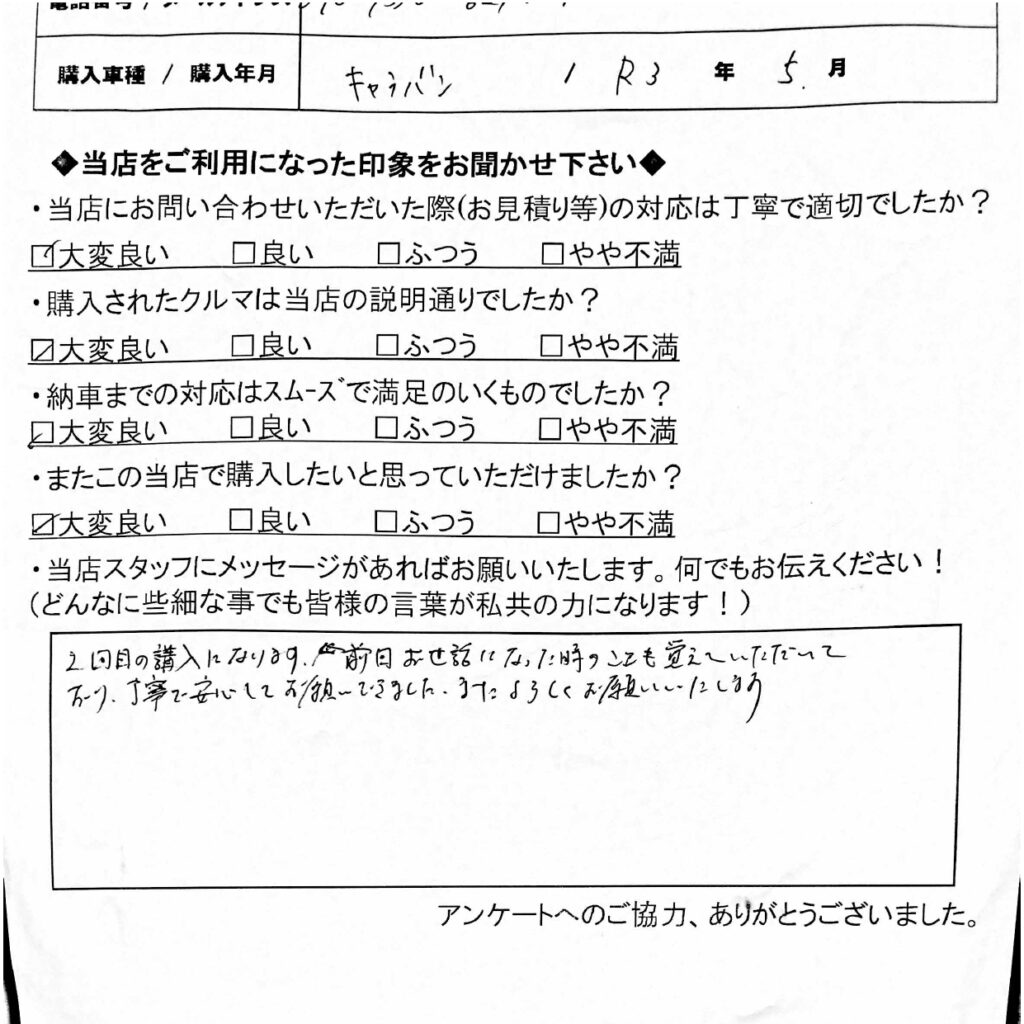 購入車種 / 購入年月 キャラバン / R3 年 5. 月
◆当店をご利用になった印象をお聞かせ下さい◆
・当店にお問い合わせいただいた際(お見積り等)の対応は丁寧で適切でしたか?
☑大変良い □良い □ふつう □やや不満
・購入されたクルマは当店の説明通りでしたか?
☑大変良い □良い □ふつう □やや不満
・納車までの対応はスムーズで満足のいくものでしたか?
☑大変良い □良い □ふつう □やや不満
・またこの当店で購入したいと思っていただけましたか?
☑大変良い □良い □ふつう □やや不満
・当店スタッフにメッセージがあればお願いいたします。何でもお伝えください!
(どんなに些細な事でも皆様の言葉が私共の力になります!)
2回目の購入になります、前回お世話になった時のことも覚えていただいて
おり、丁寧で安心してお願いできました、またよろしくお願いいたします
アンケートへのご協力、ありがとうございました。